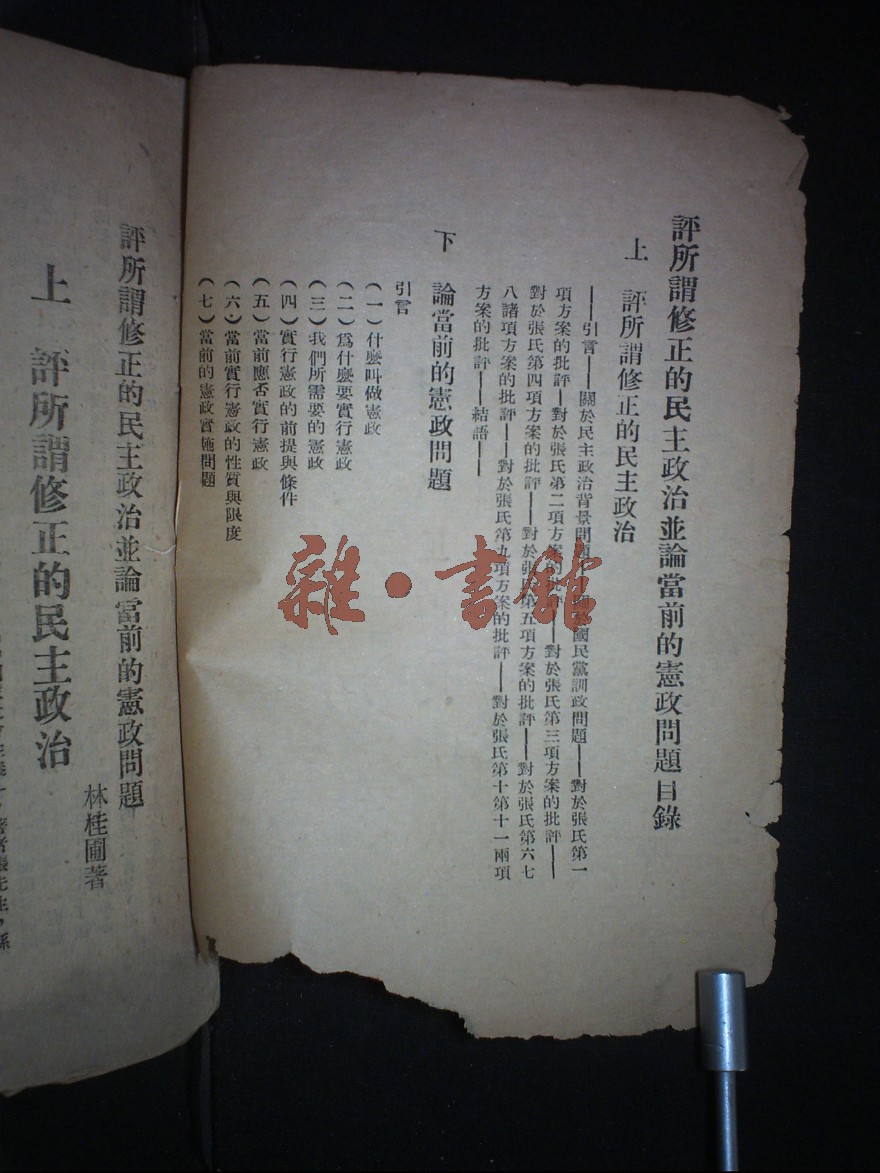 評所謂修正的民主政治並論當前的憲政問題目錄
上 評所謂修正的民主政治
——引言——關於民主政治背景問題國民黨訓政問題——對於張氏第一
項方案的批評——對於張氏第二項方案的批評——對於張氏第三項方案的批評——
對於張氏第四項方案的批評——對於張氏第五項方案的批評——對於張氏第六七
八諸項方案的批評——對於張氏第九項方案的批評——對於張氏第十第十一兩項
方案的批評——結語——
下 論當前的憲政問題
引言
(一)什麼叫做憲政
(二)爲什麼要實行憲政
(三)我們所需要的憲政
(四)實行憲政的前提與條件
(五)當前應否實行憲政
(六)當前實行憲政的性質與限度
(七)當前的憲政實施問題
評所謂修正的民主政治並論當前的憲政問題
林桂圃著
上 評所謂修正的民主政治
著者張先生,係
雜·書館